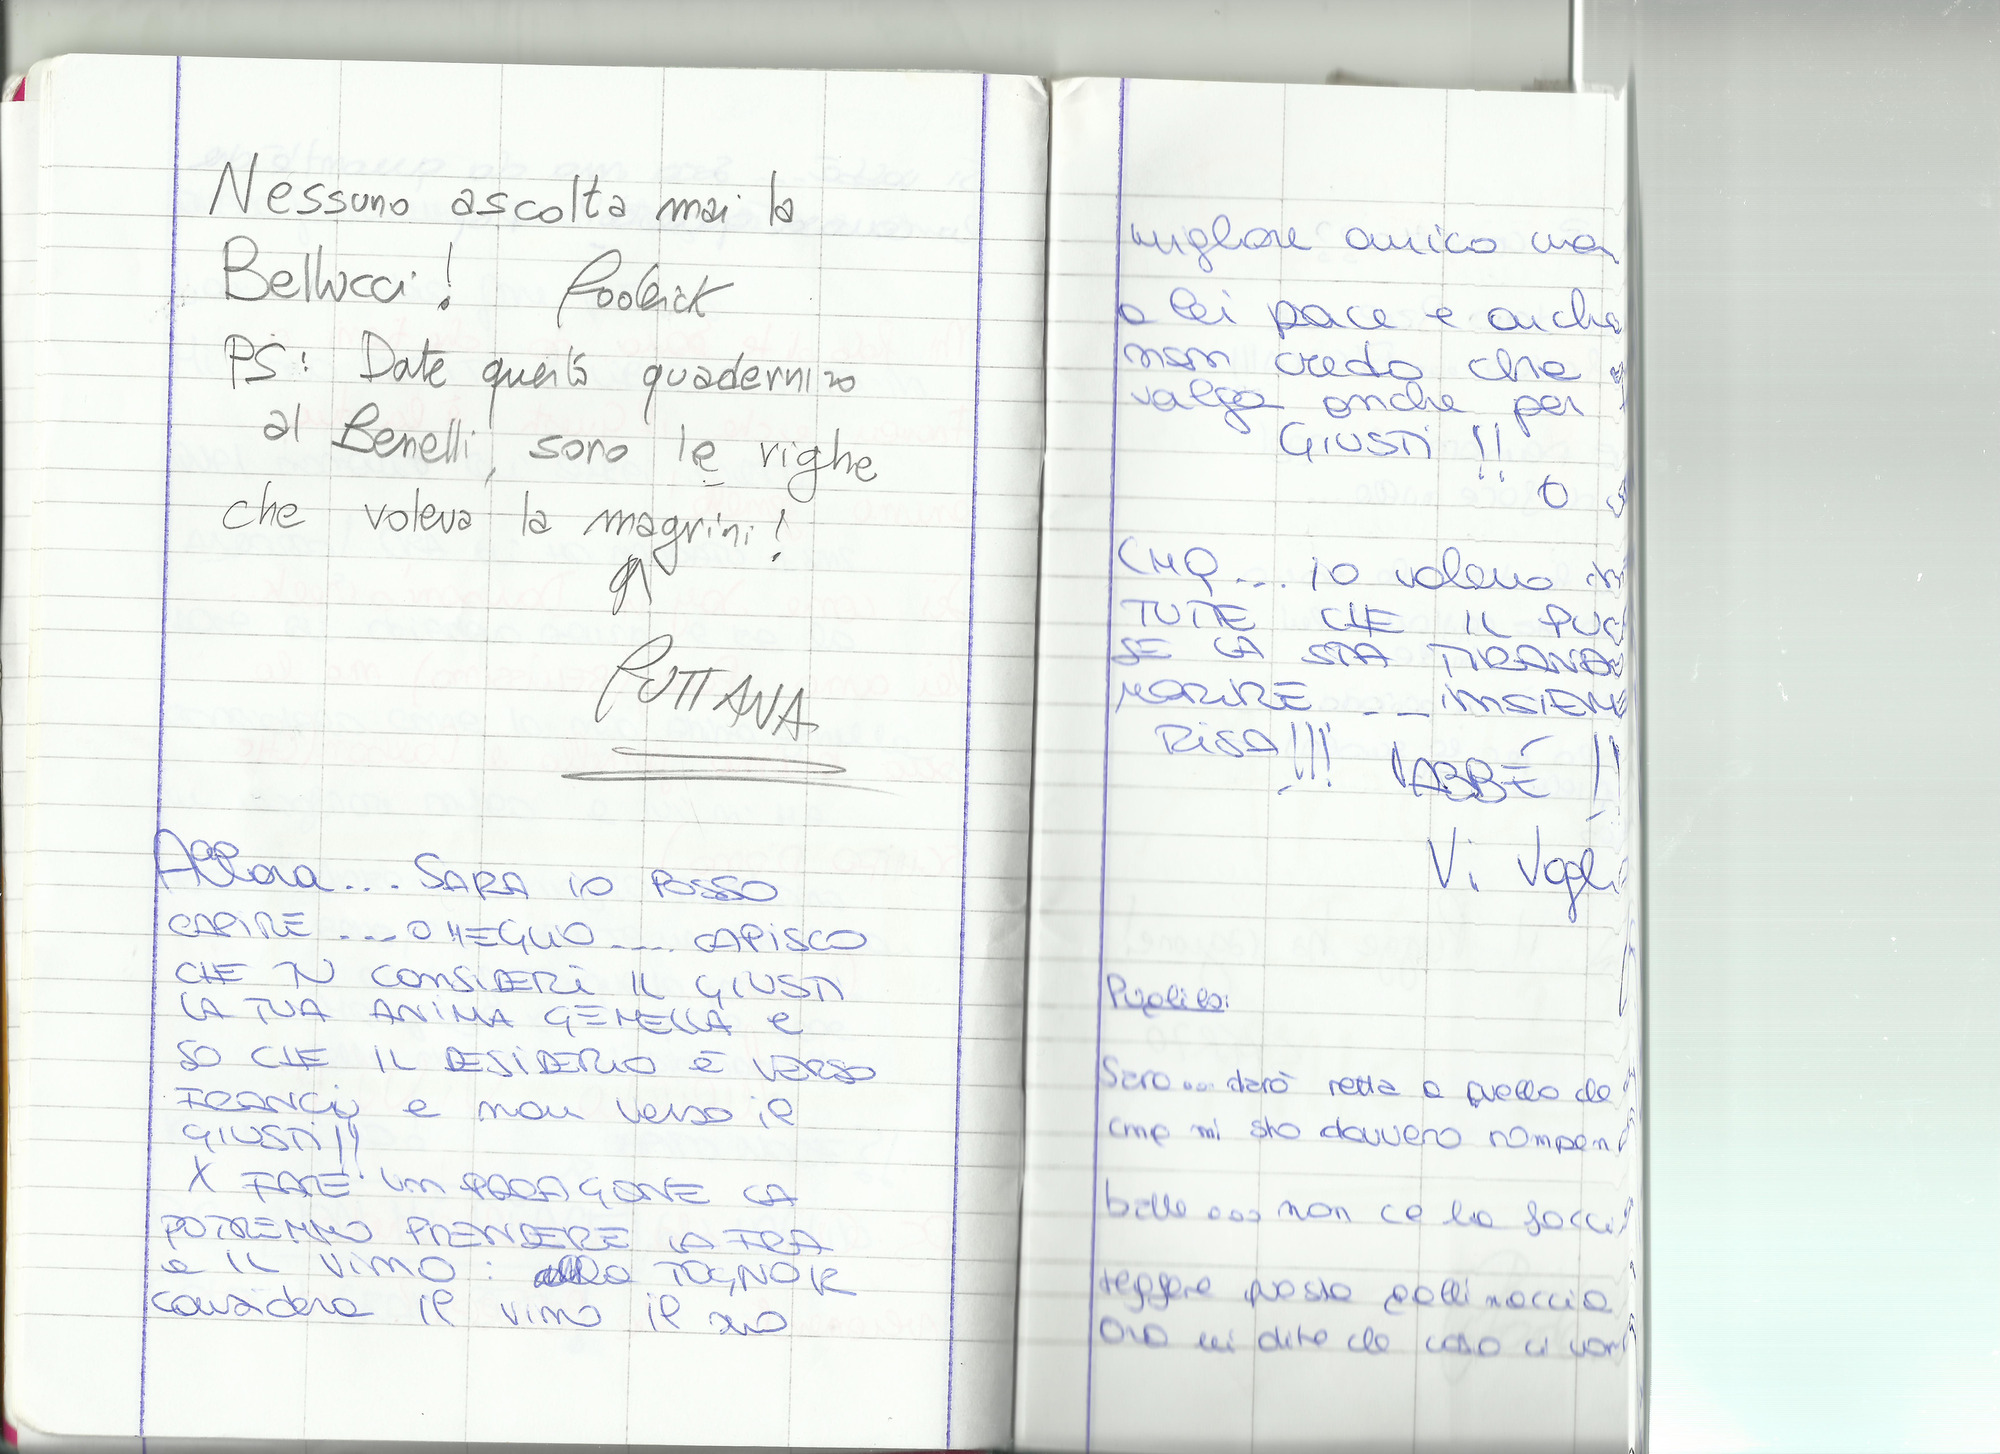 Nessuno ascolta mai la
Bellucci!
PS: Date questo quadernino
al Benelli, sono le righe
che voleva la magrini!
PUTTANA
Allora... SARA IO POSSO
CAPIRE ... O MEGLIO .... CAPISCO
CHE TU CONSIDERI IL GIUSTI
LA TUA ANIMA GEMELLA e
SO CHE IL DESIDERIO È VERSO
e non verso il
GIUSTI!!
X FARE un PARAGONE LA
POTREMMO PRENDERE LA FRA
e IL VIMO: TOGNOK
considera il vimo il suo
migliore amico ma
a lei pace e anche
non credo che
valga anche per
GIUSTI!!
O
CMQ... IO volevo
TUTTE CHE IL
SE LA STA TIRANDO
MORIRE ... INSIEM
RISA!!!
VABBÉ !!
Vi Vogli
Pugliesi:
Sara... darò retta a quello che
cmq mi sto davvero rompen
belle... non ce la facci
leggere questa gallinaccia
Ora mi dite che cosa ci